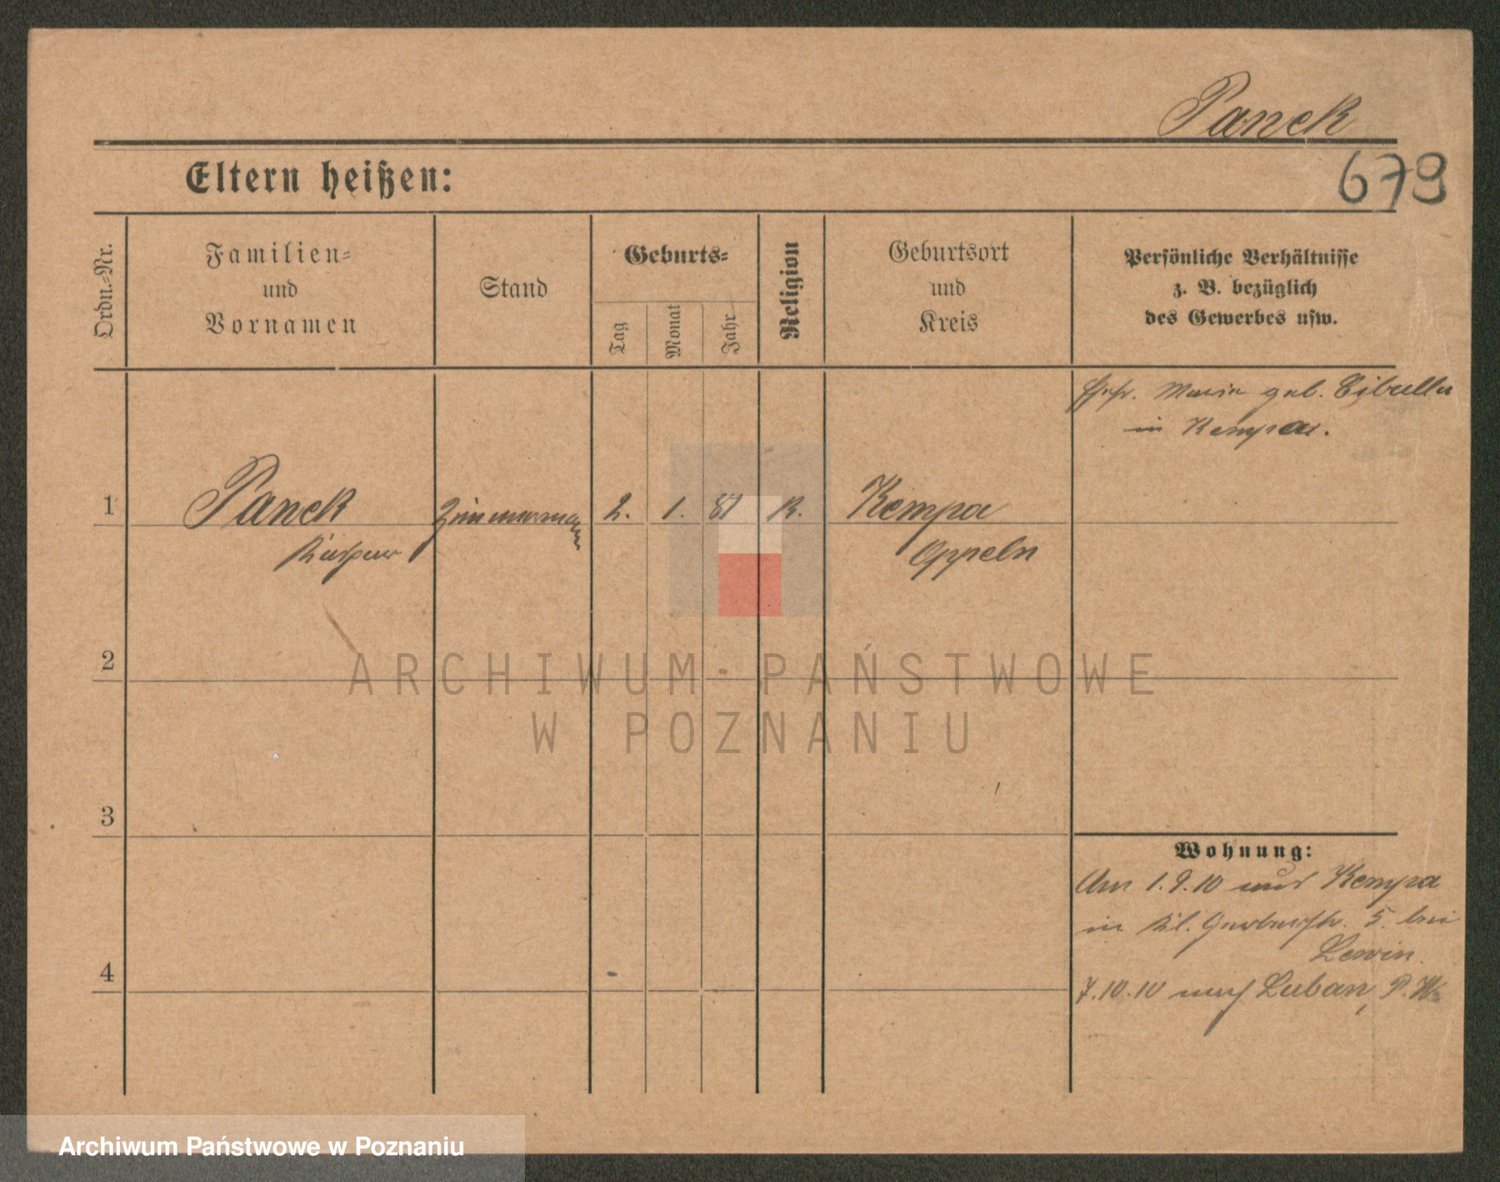 Panek
679
Eltern heißen:
Ordn.-Nr.
Familien-
und
Vornamen
Stand
Geburts-
Tag
Monat
Jahr
Religion
Geburtsort
und
Kreis
Persönliche Verhältnisse
z. B. bezüglich
des Gewerbes usw.
Ehefr. Maria geb. Cibulla
in Kempa.
1
Panek
Kaspar
Zimmermann
2.
1.
81
K.
Kempa
Oppeln
2
ARCHIWUM PAŃSTWOWE
W POZNANIU
3
4
Wohnung:
Am 1.9.10 aus Kempa
in Kl. Gerberstr. 5. bei
Lewin.
7.10.10 nach Luban, P.W.
Archiwum Państwowe w Poznaniu